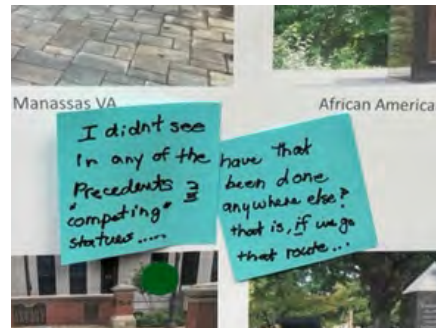 Manassas VA
African America
I didnt see
in any of the
Precedents 2
"competing"
statues.....
have that
been done
anywhere else?
that is, if we go
that route...